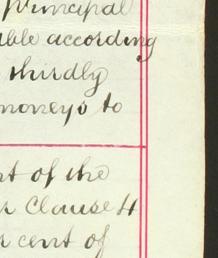 Principal
able according
thirdly
moneys to
t of the
r Clause 4
r cent of